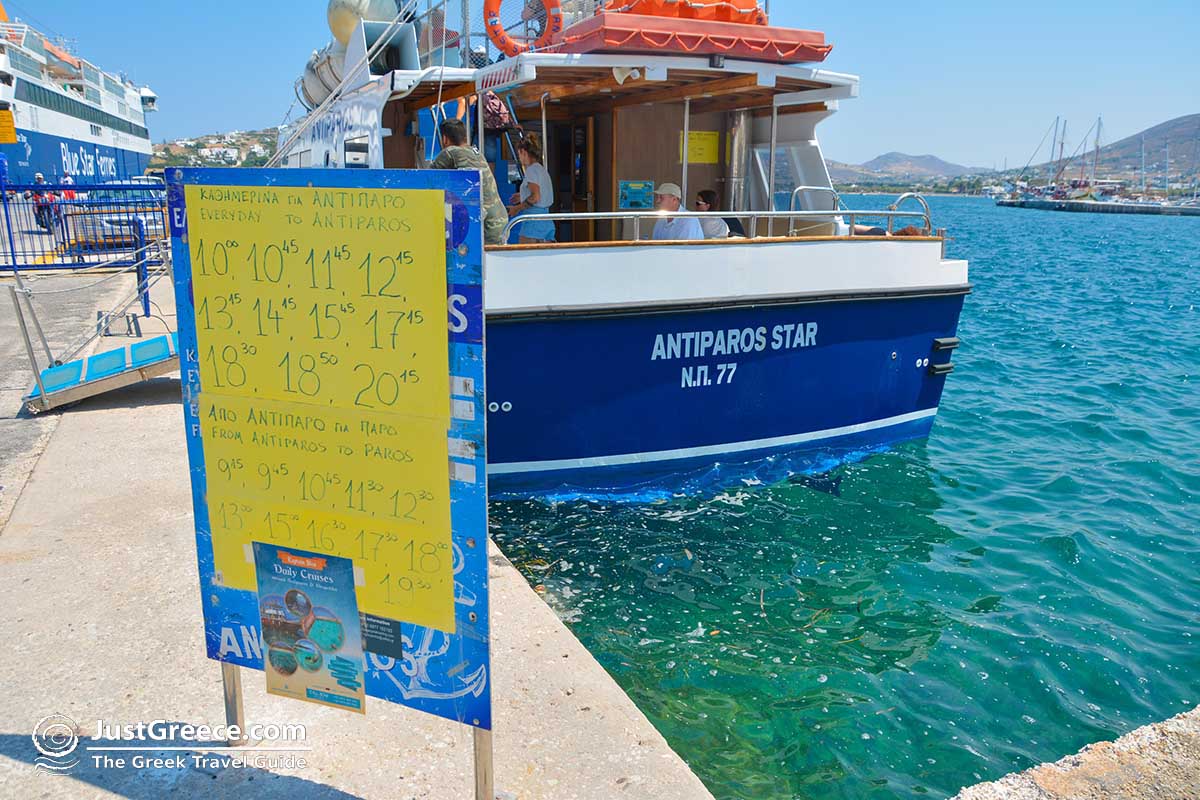 Blue Star Ferries
ΚΑΘΗΜΕΡΙΝΑ ΓΙΑ ΑΝΤΙΠΑΡΟ
EVERYDAY TO ANTIPAROS
10⁰⁰, 10⁴⁵, 11⁴⁵, 12¹⁵,
13¹⁵, 14¹⁵, 15⁴⁵, 17¹⁵,
18³⁰, 18⁵⁰, 20¹⁵
ΑΠΟ ΑΝΤΙΠΑΡΟ ΓΙΑ ΠΑΡΟ
FROM ANTIPAROS TO PAROS
9¹⁵, 9⁴⁵, 10⁴⁵, 11³⁰, 12³⁰,
13³⁰, 15⁰⁰, 16³⁰, 17³⁰, 18⁰⁰
19³⁰
Daily Cruises
ANTIPAROS STAR
Ν.Π. 77
JustGreece.com
The Greek Travel Guide